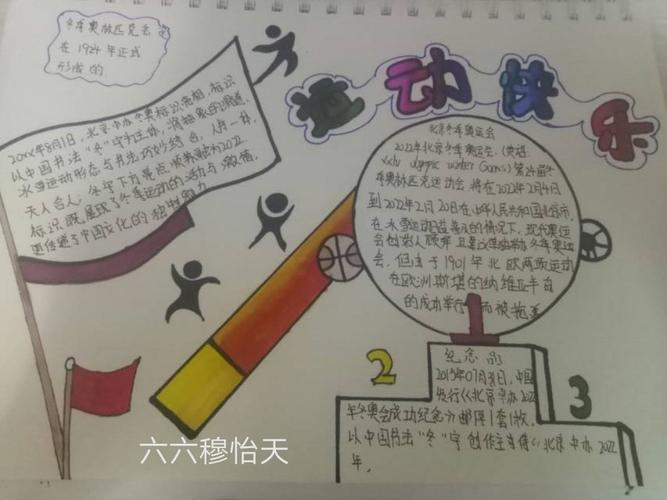 冬季奥林匹克会
在1924年正式
形成的
运动快乐
20xx年8月1日,北京申办冬奥标识亮相,标识
以中国书法"冬"字为主体,将抽象的滑道、
冰雪运动形态与书法巧妙结合,人书一体,
天人合一,冬字下方两点顺势融为2022.
标识既展现了冬季运动的活力与激情,
更传递了中国文化的独特魅力
北京冬季奥运会
2022年北京冬季奥运会,(英语
xxlv olympic winter Games)第24届冬
季奥林匹克运动会 将在2022年2月4日
到2022年2月20日在中华人民共和国北京市,
在冰雪运动日益普及的情况下,现代奥运
会创始人顾拜旦建议单独举办冬季奥运
会,但由于1901年北欧两项运动
在欧洲斯堪的纳维亚半岛
的成功举行 而被拖
1
2
3
纪念品
2015年07月31日,中国
发行《北京申办2022
年冬奥会成功纪念》邮票1套1枚,
以中国书法"冬"字创作主体《北京申办2022
年,
六六穆怡天